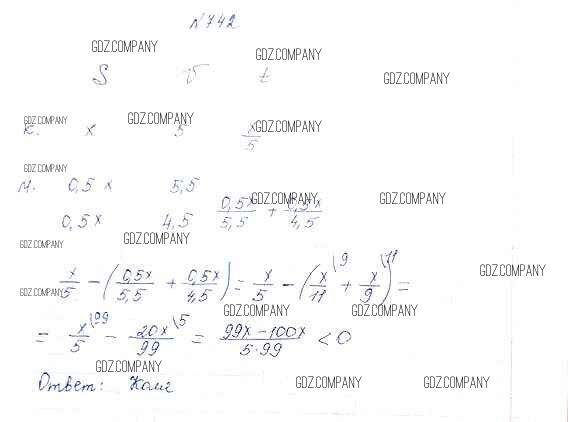 №742
GDZ.COMPANY GDZ.COMPANY
S V t GDZ.COMPANY
GDZ.COMPANY GDZ.COMPANY GDZ.COMPANY
К. x 5 x/5
GDZ.COMPANY
М. 0,5x 5,5
0,5x 4,5 0,5x/5,5 + 0,5x/4,5
GDZ.COMPANY GDZ.COMPANY
GDZ.COMPANY GDZ.COMPANY
x/5 - (0,5x/5,5 + 0,5x/4,5) = x/5 - (x\9/11 + x\11/9) =
GDZ.COMPANY GDZ.COMPANY
GDZ.COMPANY GDZ.COMPANY
= x\99/5 - 20x\5/99 = 99x-100x/5·99 < 0
GDZ.COMPANY
Ответ: Коля
GDZ.COMPANY GDZ.COMPANY